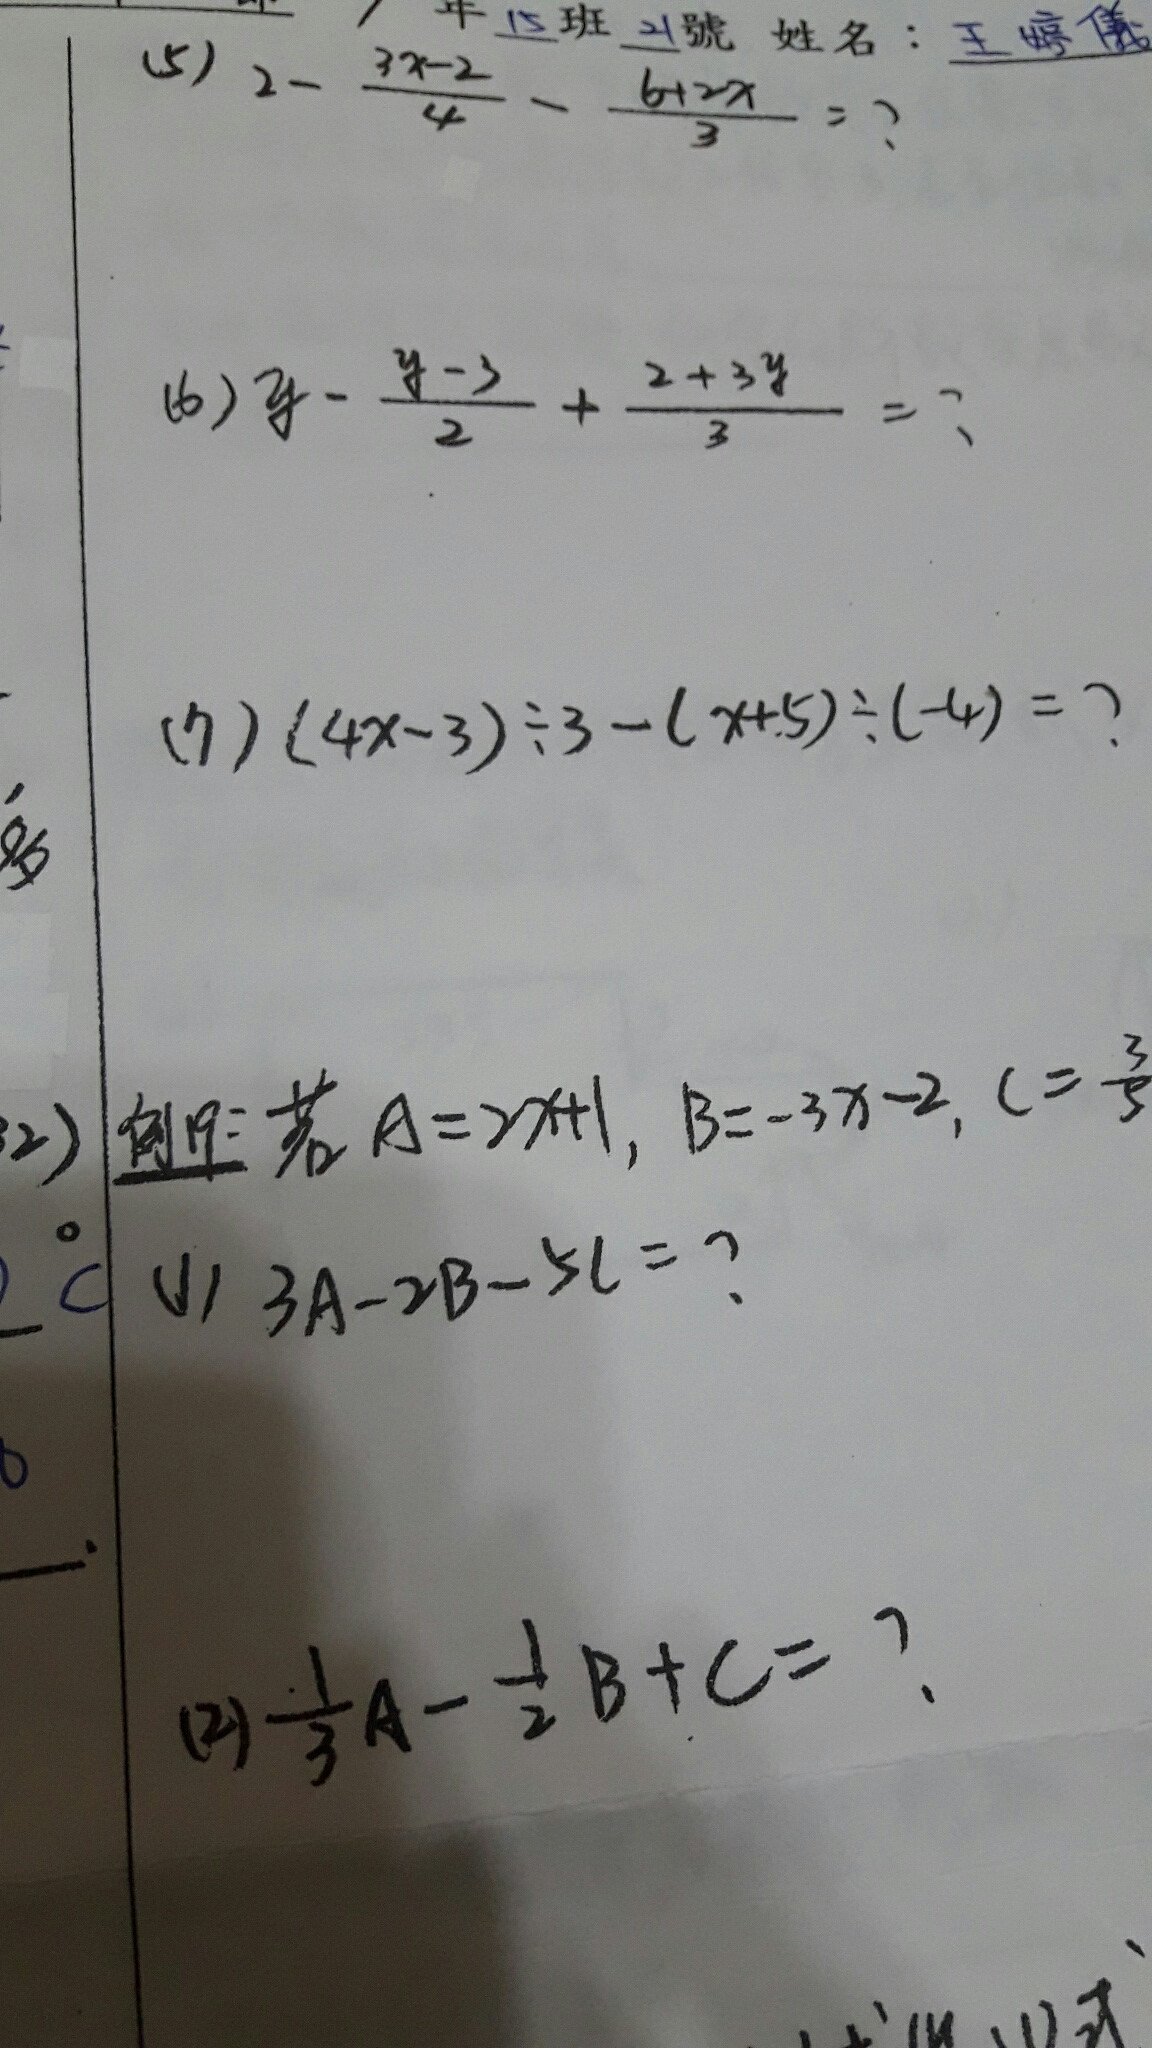 年 15 班 21 號 姓名：王婷儀
(5) 2 - \frac{3x-2}{4} - \frac{6+2x}{3} = ?
(6) y - \frac{y-3}{2} + \frac{2+3y}{3} = ?
(7) (4x-3)÷3-(x+5)÷(-4) = ?
例: 若 A=2x+1, B=-3x-2, C=\frac{3}{5}
(1) 3A-2B-5C=?
(2) \frac{1}{3}A - \frac{1}{2}B+C=?